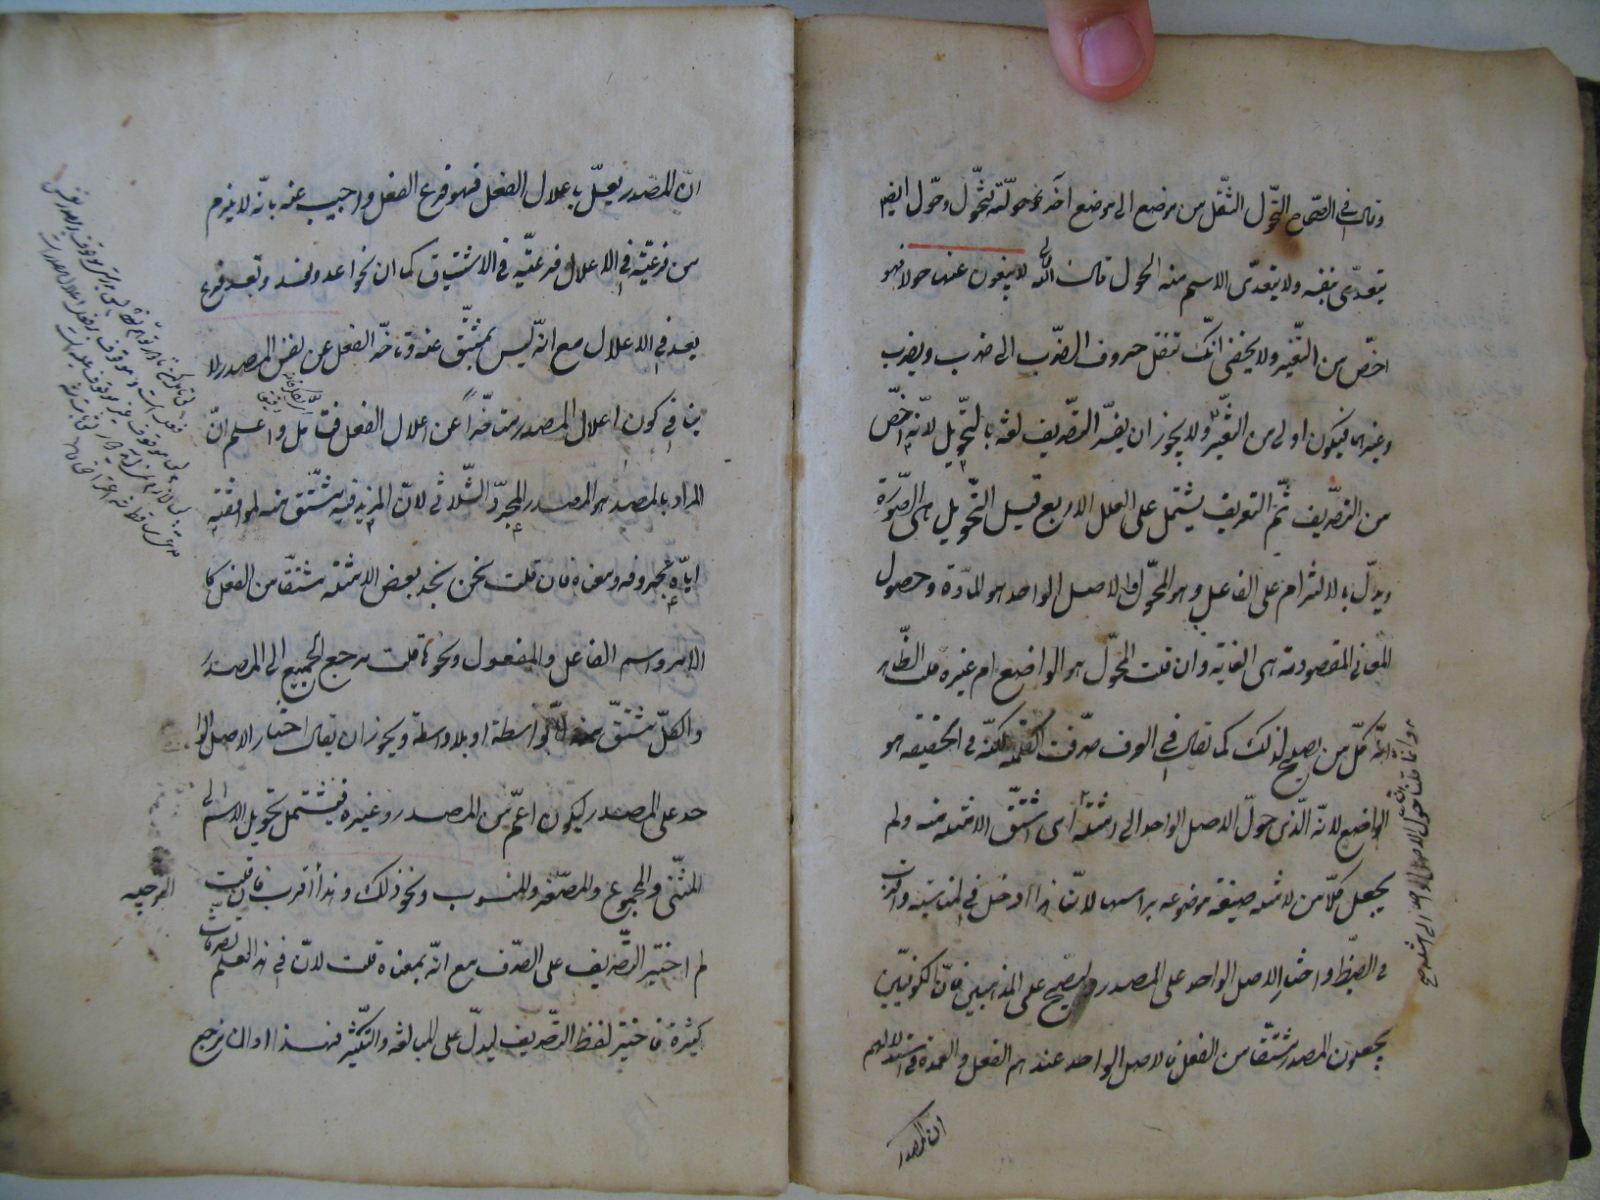 وقال في الصحاح التحول التنقل من موضع الى موضع آخر نحو حولته فتحول وحول ايضا
يتعدى بنفسه ولا يتعدى الاسم منه الحول قال الله تعالى لا يبغون عنها حولا فهو
اخص من التغير ولا يخفى انك تنقل حروف الضرب الى ضرب ويضرب
وغيرهما فيكون اولى من التغير ولا يجوز ان يفسر التصريف لغة بالتحويل لانه اخص
من التصريف ثم التعريف يشتمل على العلل الاربع قيل التحويل هى الصورة
ويدل بالالتزام على الفاعل وهو المحول والاصل الواحد هو المادة وحصول
المعانى المقصودة هى الغاية وان قلت المحول هو الواضع ام غيره قلت الظاهر
انه كل من يصلح لذلك كما تقال فى العرف صرفت الكلمة لكنه فى الحقيقة هو
الواضع لانه الذى حول الاصل الواحد الى امثلة اى اشتق الامثلة منه ولم
يجعل كلا من الامثلة صيغة موضوعة براسها لان هذا ادخل فى المناسبة واقرب
الى الضبط واختار الاصل الواحد على المصدر ليصح على المذهبين فان الكوفيين
يجعلون المصدر مشتقا من الفعل فالاصل الواحد عندهم الفعل والعمدة فى استدلالهم
ان المصدر
وانما قلنا حول الاصل الواحد الى امثلة صح
ان المصدر يعل باعلال الفعل فهو فرع الفعل واجيب عنه بانه لا يلزم
من فرعيته فى الاعلال فرعيته فى الاشتقاق كما ان نحو اعد ونعد وتعد فرع
يعد فى الاعلال مع انه ليس بمشتق عنه وتاخر الفعل عن نفس المصدر لا
ينافى كون اعلال المصدر متاخرا عن اعلال الفعل فتامل واعلم ان
المراد بالمصدر هو المصدر المجرد الثلاثى لان المزيد فيه مشتق منه لموافقته
اياه بحروفه ومعناه فان قلت نحن نجد بعض الامثلة مشتقا من الفعل كا
الامر واسم الفاعل والمفعول ونحوها قلت مرجع الجميع الى المصدر
والكل مشتق منه بواسطة او بلا واسطة ويجوز ان يقال اختار الاصل الوا
حد على المصدر ليكون اعم من المصدر وغيره فيشتمل تحويل الاسم الى
المثنى والمجموع والمصغر والمنسوب ونحو ذلك وهذا اقرب فان قلت
لم اختير التصريف على الصرف مع انه بمعناه قلت لان فى هذا العلم تصرفات
كثيرة فاختير لفظ التصريف ليدل على المبالغة والتكثير فهذا اوان نرجع